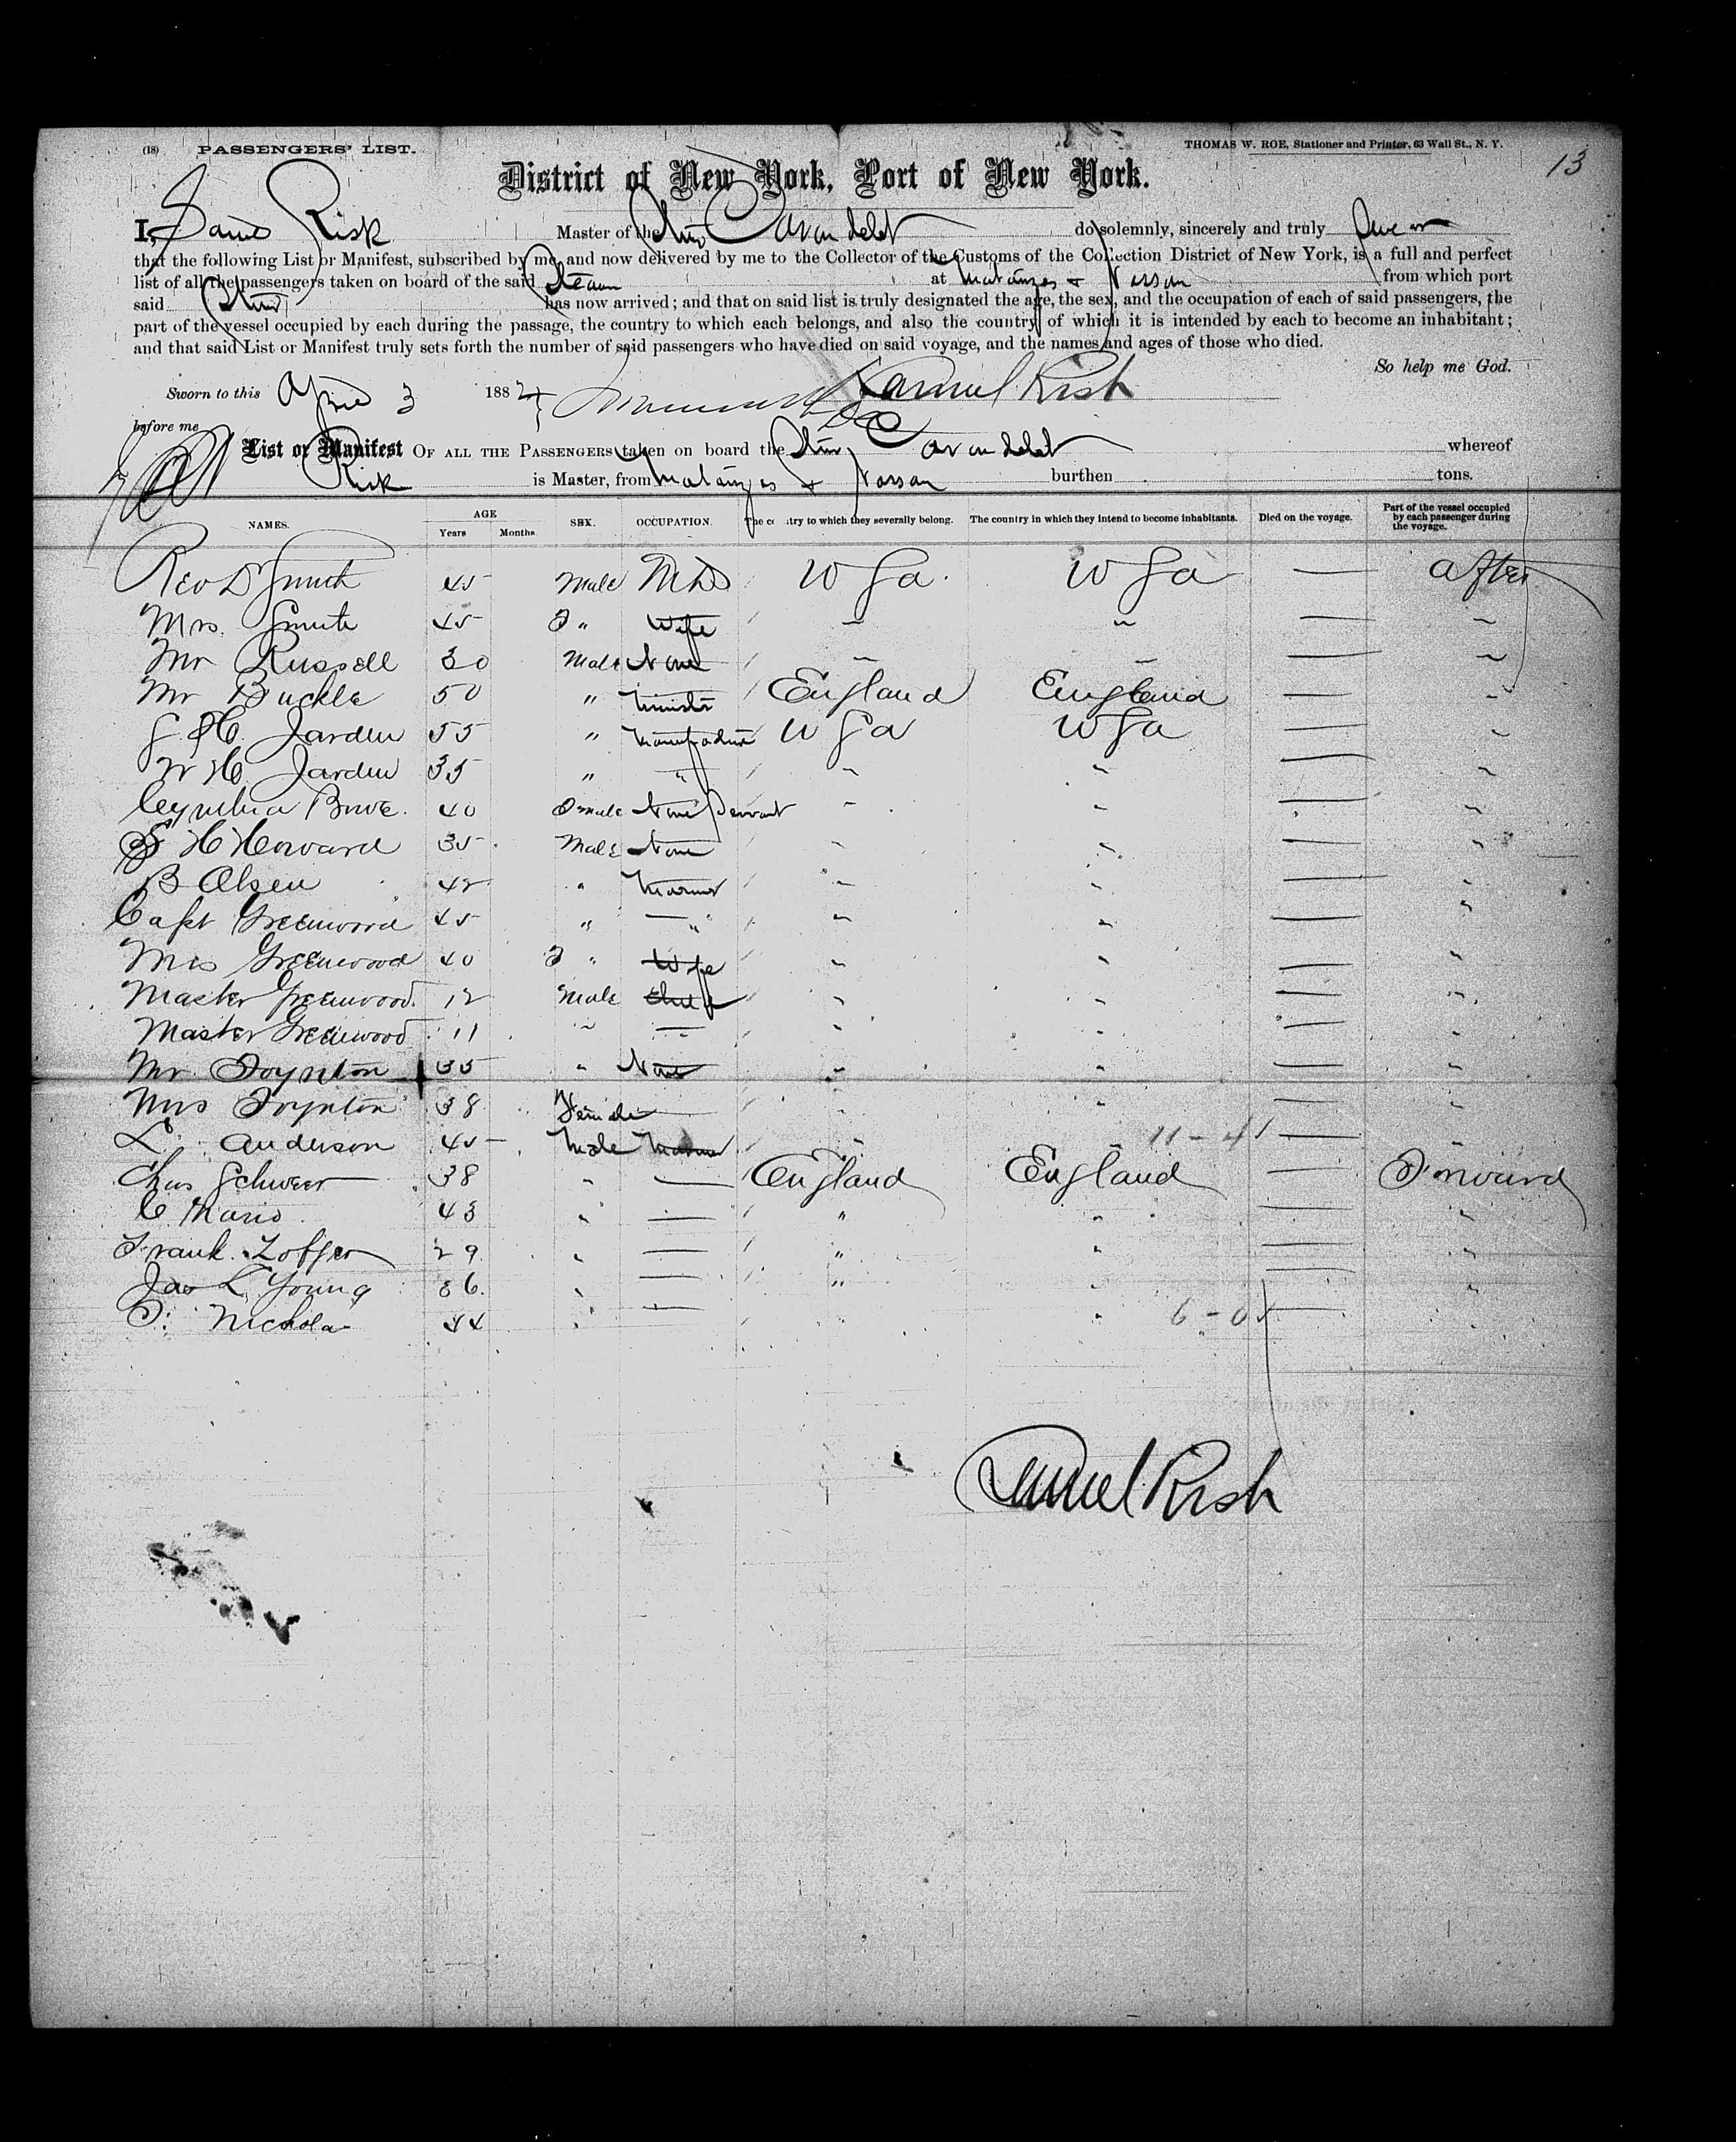 (18) PASSENGERS' LIST. THOMAS W. ROE, Stationer and Printer, 63 Wall St., N. Y.
13
District of New York, Port of New York.
I, Risk Master of the do solemnly, sincerely and truly swear
that the following List or Manifest, subscribed by me, and now delivered by me to the Collector of the Customs of the Collection District of New York, is a full and perfect
list of all the passengers taken on board of the said Steam at Matanzas & Nassau from which port
said has now arrived; and that on said list is truly designated the age, the sex, and the occupation of each of said passengers, the
part of the vessel occupied by each during the passage, the country to which each belongs, and also the country of which it is intended by each to become an inhabitant;
and that said List or Manifest truly sets forth the number of said passengers who have died on said voyage, and the names and ages of those who died.
So help me God.
Sworn to this April 3 188 Samuel Risk
before me
List or Manifest OF ALL THE PASSENGERS taken on board the whereof
Risk is Master, from Matanzas & Nassau burthen tons.
NAMES. AGE Years Months. SEX. OCCUPATION. The co try to which they severally belong. The country in which they intend to become inhabitants. Died on the voyage. Part of the vessel occupied by each passenger during the voyage.
Rev D Smith 45 Male — After
Mrs. Smith 45 F " Wife " " — "
Mr Russell 30 Male None " " — "
Mr Buckle 50 " Minister England England — "
Jarden 55 " — "
W H Jarden 35 " " " " — "
Cynthia 40 Female None Servant " " — "
H Howard 35 Male None " " — "
B Olsen 42 " Mariner " " — "
Capt Greenwood 45 " — " " " — "
Mrs Greenwood 40 F " Wife " " — "
Master Greenwood. 12 Male " " — "
Master Greenwood 11 " — " " — "
Mr. Foynton 35 " None " " — "
Mrs Foynton 38 Female — " " — "
L. Anderson 45 Male Mariner " " 11 - 4 — "
Chas Schweer 38 " — England England — Forward
C. Mario 43 " — " " — "
Frank 29 " — " " — "
Jas L Young 36. " — " " — "
Nichola 44 " — " " 6 - 0 — "
Samuel Risk